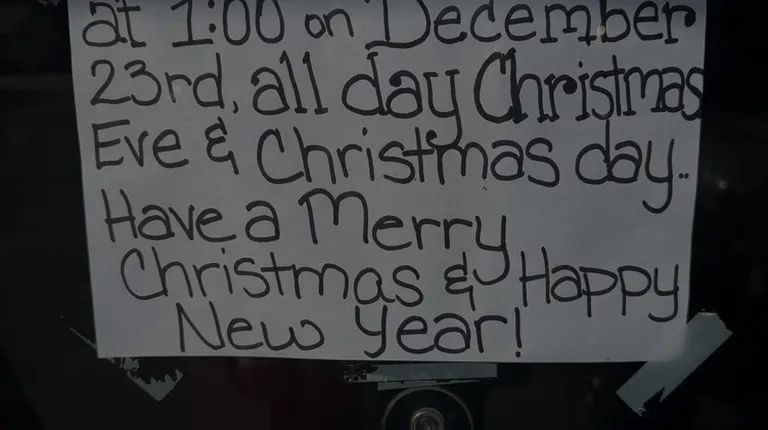 at 1:00 on December
23rd, all day Christmas
Eve & Christmas day..
Have a Merry
Christmas & Happy
New Year!